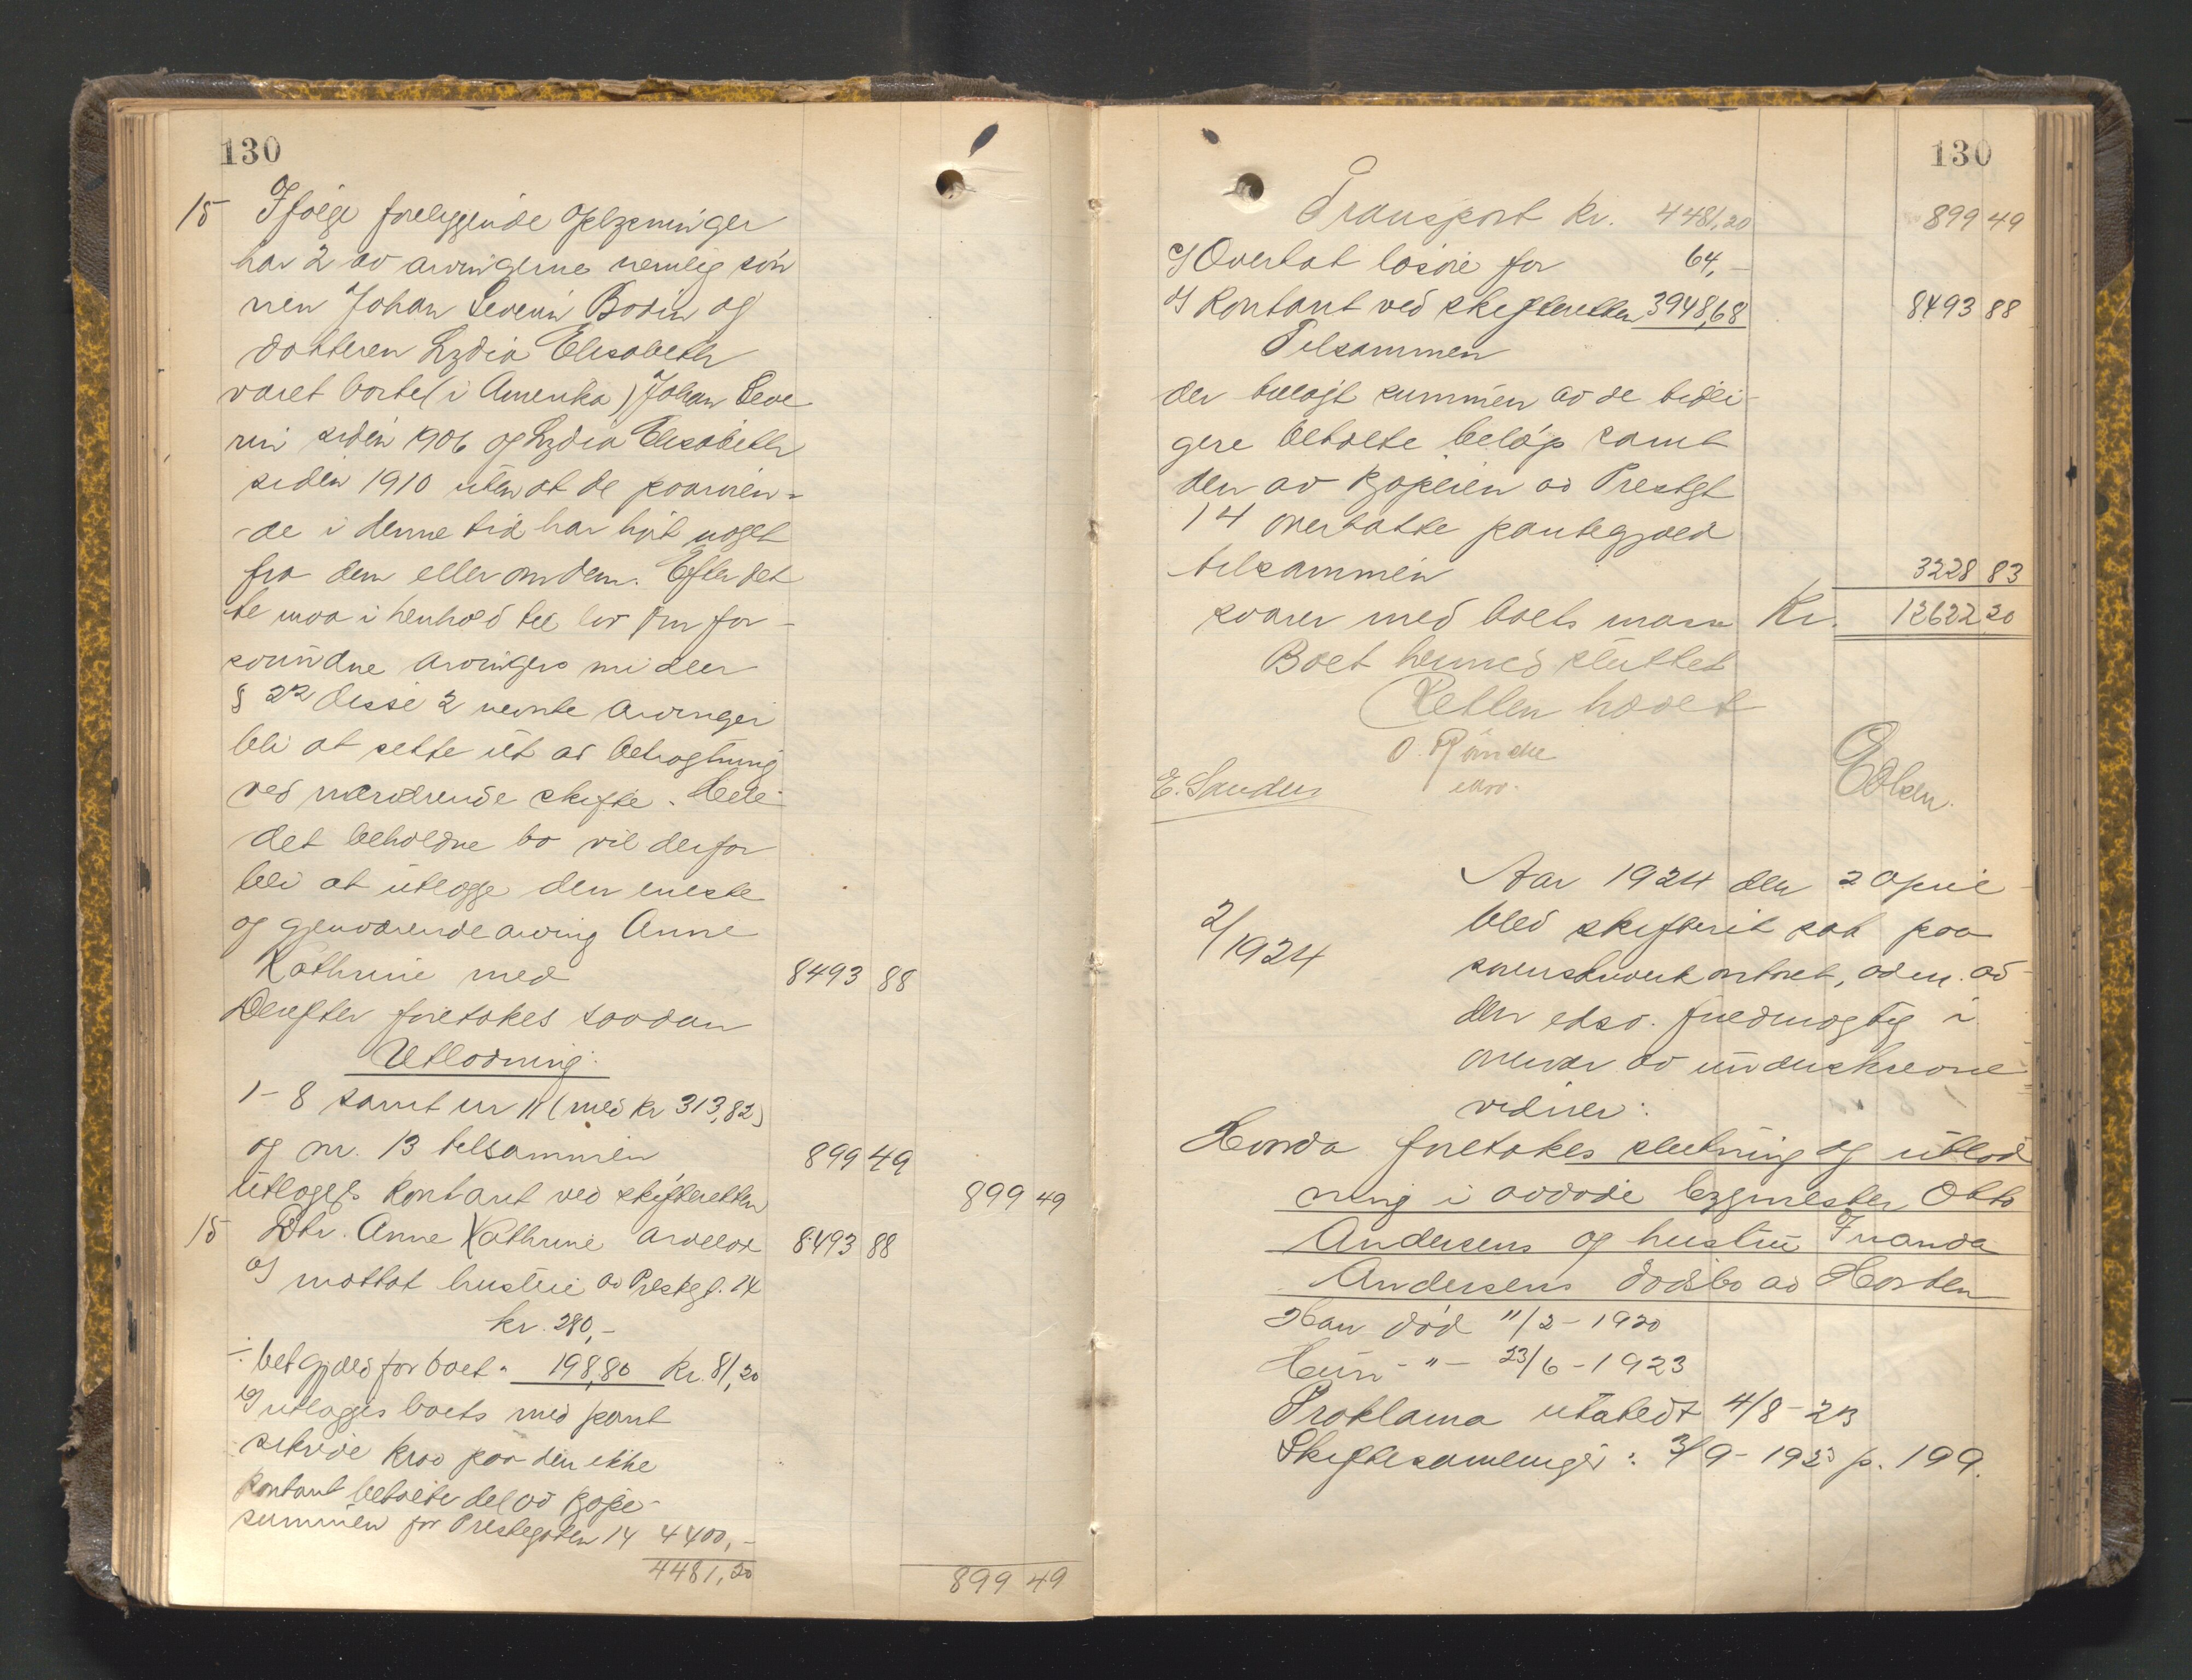 130
15 Ifølge foreliggende oplysninger
har 2 av arvingerne nemlig søn
nen Johan Severin Bodin og
datteren Lydia Elisabeth
været borte (i Amerika) Johan Seve
rin siden 1906 og Lydia Elisabeth
siden 1910 uten at de paarøren-
de i denne tid har hørt noget
fra dem eller om dem. Efter det
te maa i henhold til lov om for-
svundne arvingers midler
§ 22 disse 2 nevnte arvinger
bli at sette ut av betragtning
ved nærværende skifte. Hele
det beholdne bo vil derfor
bli at utlægge den eneste
og gjenværende arving Anne
Kathrine med 8493 88
Derefter foretokes saadan
Utlodning:
1-8 samt nr 11 (med kr 313,82)
og nr. 13 tilsammen 899 49
utlægges kontant ved skifteretten 899 49
15 Dtr. Anne Kathrine arvelod 8493 88
a) mottat husleie av Prestegt. 14
kr. 280,-
÷ bet gjæld for boet " 198,80 Kr. 81,20
b) utlægges boets med pant
sikrede krav paa den ikke
kontant betalte del av kjøpe-
summen for Prestegaten 14 4400,-
4481,20 899 49
130
Transport kr. 4481,20 899 49
c) Overtat løsøre for 64,-
d) Kontant ved skifteretten 3948,68 8493 88
Tilsammen
der tillagt summen av de tidli-
gere betalte beløp samt
den av kjøperen av Prestgt
14 overtatte pantegjæld
tilsammen 3228 83
svarer med boets masse Kr. 12622 20
Boet hermed sluttet
Retten hævet
O. Rønche
E. Sanders
EOlsen.
Aar 1924 den 2 april
blev skifteret sat paa
sorenskriverkontoret, adm. av
den edsv. fuldmægtig i
overvær av underskrevne
vidner:
2/ 1924
Hvorda foretokes slutning og utlod
ning i avdøde bygmester Otto
Andersens og hustru
Andersens dødsbo av Horten
Han død 11/2-1920
Hun -"- 23/6-1923
Proklama utstedt 4/8-23
Skiftesamlinger: 3/9-1923 p. 199.